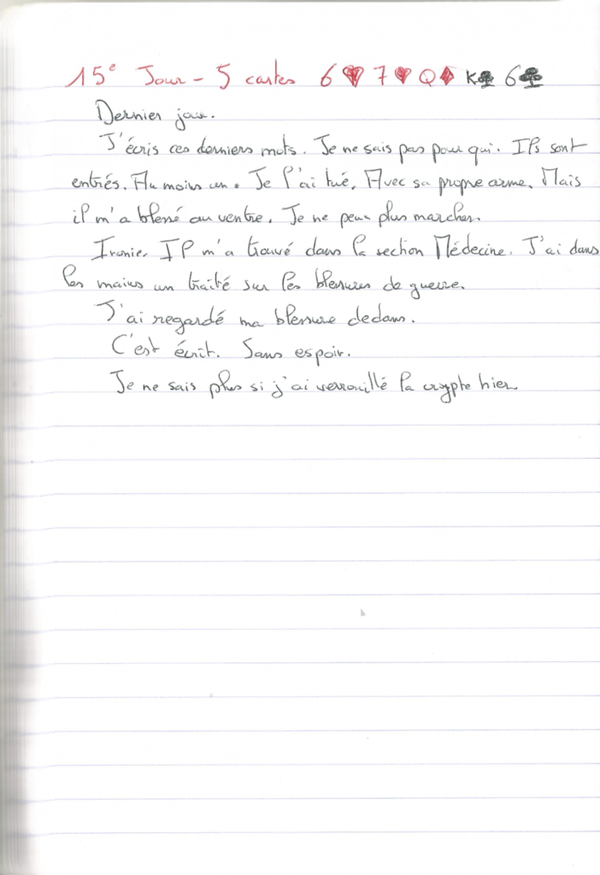 15e Jour - 5 cartes 6♥ 7♥ Q♦ K♣ 6♣
Dernier jour.
J'écris ces derniers mots. Je ne sais pas pour qui. Ils sont
entrés. Au moins un. Je l'ai tué. Avec sa propre arme. Mais
il m'a blessé au ventre. Je ne peux plus marcher.
Ironie. Il m'a trouvé dans la section Médecine. J'ai dans
les mains un traité sur les blessures de guerre.
J'ai regardé ma blessure dedans.
C'est écrit. Sans espoir.
Je ne sais plus si j'ai verrouillé la crypte hier